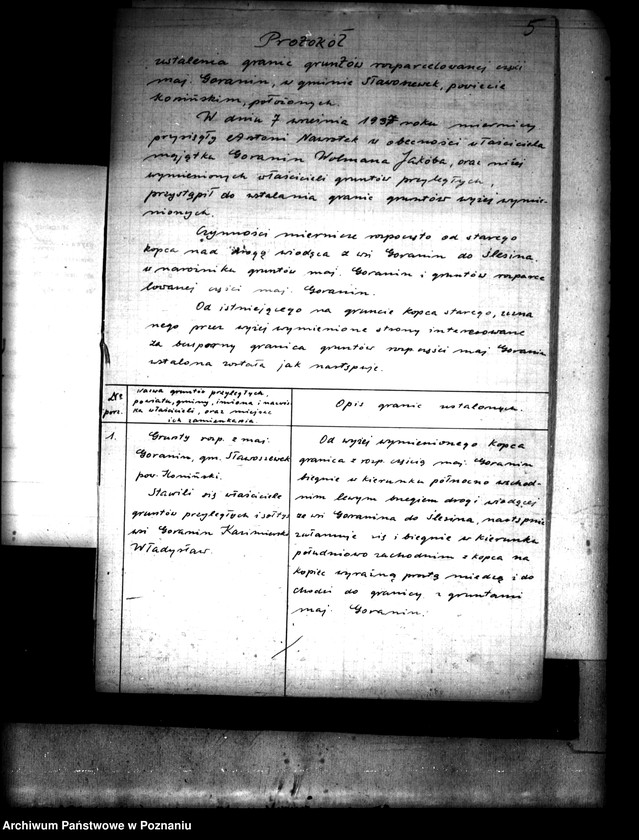 5
Protokół
ustalenia granic gruntów rozparcelowanej części
maj. Goranin, w gminie Sławoszewek, powiecie
konińskim, położonych.
W dniu 7 września 1937 roku mierniczy
przysięgły Antoni Nawrotek w obecności właściciela
majątku Goranin Wolmana Jakóba, oraz niżej
wymienionych właścicieli gruntów przyległych,
przystąpił do ustalania granic gruntów wyżej wymie-
nionych.
Czynności miernicze rozpoczęto od starego
kopca nad drogą wiodącą z wsi Goranin do Ślesina
w narożniku gruntów maj. Goranin i gruntów rozparce
lowanej części maj. Goranin.
Od istniejącego na gruncie kopca starego, uzna
nego przez wyżej wymienione strony interesowane
za bezsporny granica gruntów rozp. części maj. Goranin
ustalona została jak następuje.
№ porz.
Nazwa gruntów przyległych,
powiatu, gminy, imiona i nazwis
ka właścicieli, oraz miejsce
ich zamieszkania.
Opis granic ustalonych.
1.
Grunty rozp. z maj.
Goranin, gm. Sławoszewek
pow. Koniński.
Stawili się właściciele
gruntów przyległych i sołtys
wsi Goranin Kaźmierski
Władysław.
Od wyżej wymienionego kopca
granica z rozp. częścią maj. Goranin
biegnie w kierunku północno wschod-
nim lewym brzegiem drogi wiodącej
ze wsi Goranina do Ślesina, następnie
załamuje się i biegnie w kierunku
południowo zachodnim z kopca na
kopiec wyraźną prostą miedzą i do
chodzi do granicy z gruntami
maj. Goranin.
Archiwum Państwowe w Poznaniu